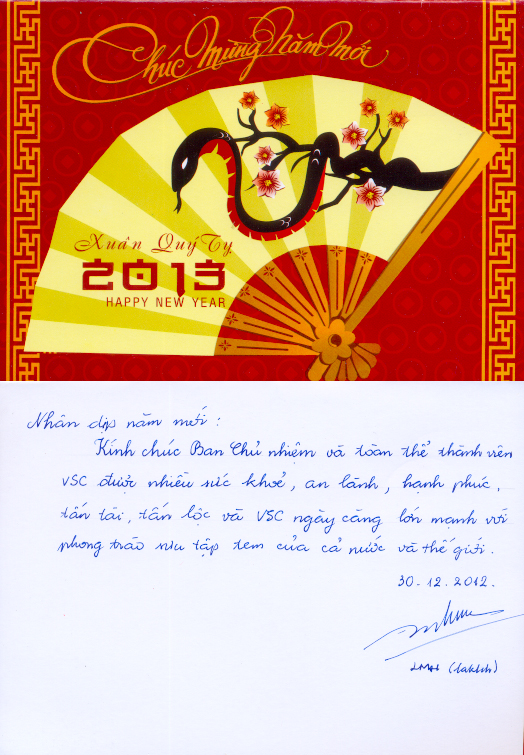 Chúc Mừng Năm Mới
Xuân Quý Tỵ
2013
HAPPY NEW YEAR
Nhân dịp năm mới:
Kính chúc Ban Chủ nhiệm và toàn thể thành viên
VSC được nhiều sức khoẻ, an lành, hạnh phúc,
tấn tài, tấn lộc và VSC ngày càng lớn mạnh với
phong trào sưu tập tem của cả nước và thế giới.
30-12.2012.